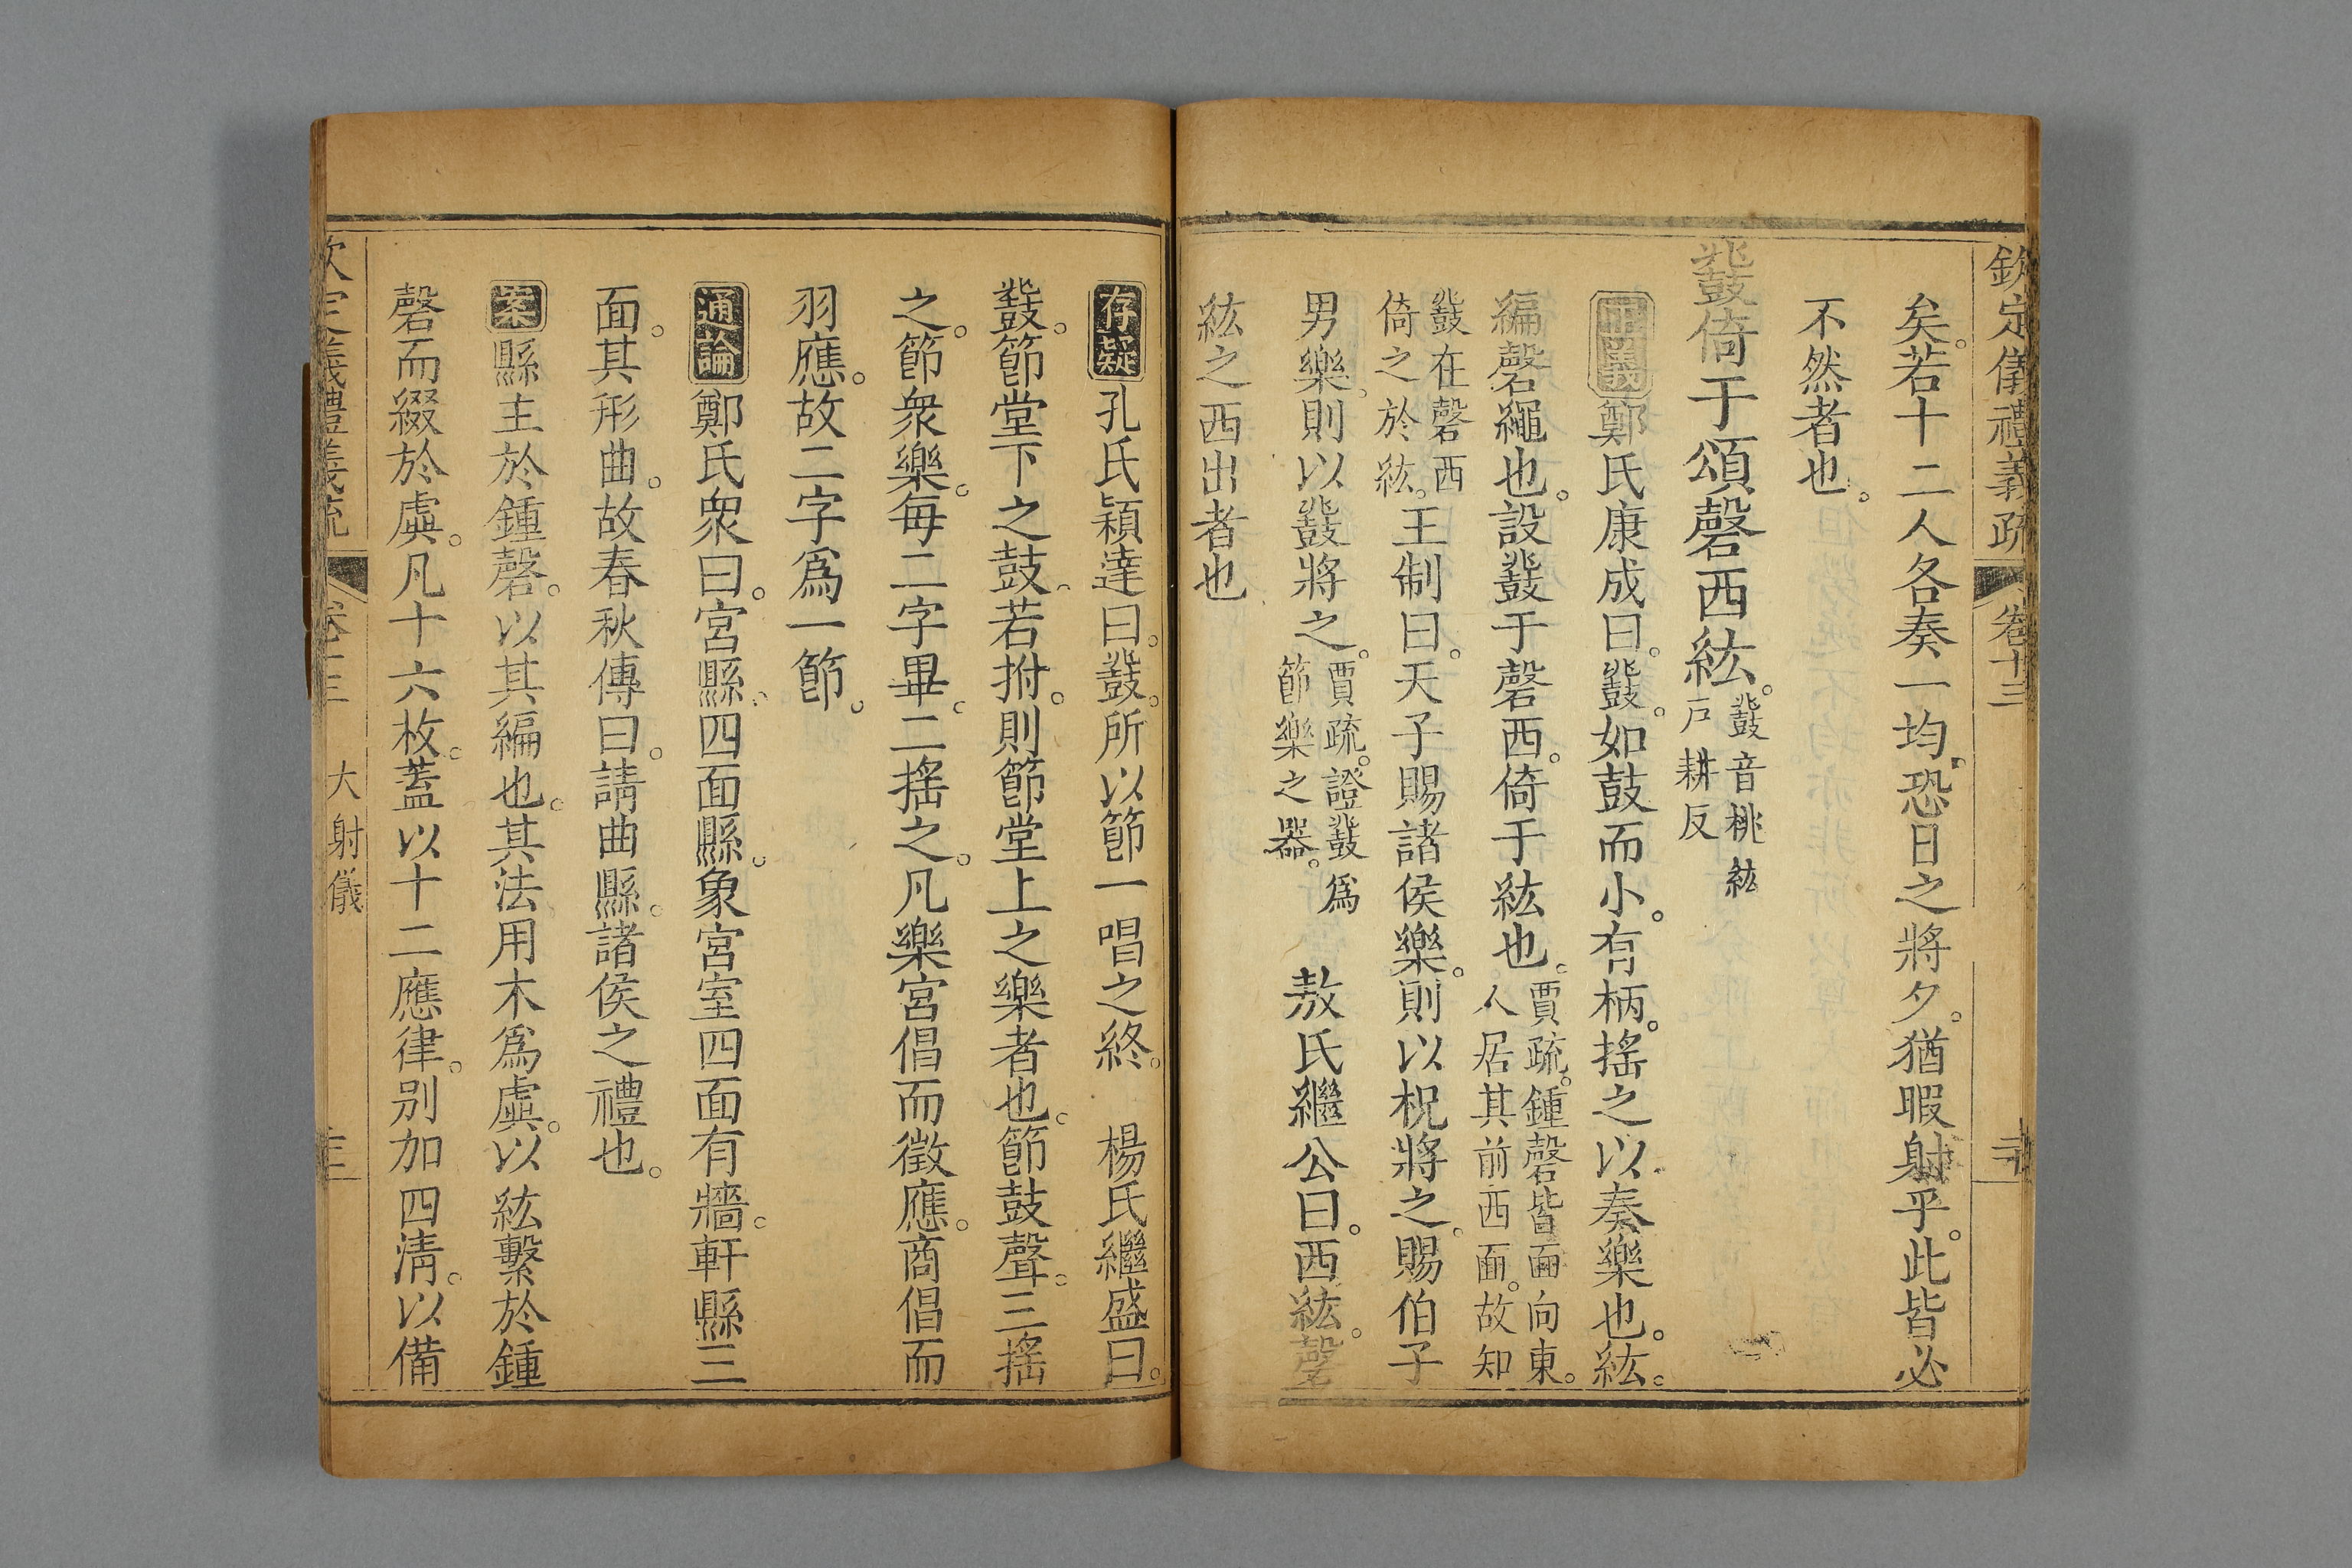 欽定儀禮義疏 卷十三
矣。若十二人各奏一均。恐日之將夕。猶暇射乎。此皆必
不然者也。
鼗倚于頌磬西紘。鼗音桃紘
戶耕反
正義鄭氏康成曰。鼗。如鼓而小。有柄。搖之以奏樂也。紘。
編磬繩也。設鼗于磬西。倚于紘也。賈疏。鍾磬皆面向東。
人居其前西面。故知
鼗在磬西
倚之於紘。王制曰。天子賜諸侯樂。則以柷將之。賜伯子
男樂。則以鼗將之。賈疏。證鼗爲
節樂之器。 敖氏繼公曰。西紘。磬
紘之西出者也
存疑孔氏穎達曰。鼗。所以節一唱之終。 楊氏繼盛曰。
鼗。節堂下之鼓。若拊。則節堂上之樂者也。節鼓聲。三搖
之。節衆樂。每二字畢。二搖之。凡樂宮倡而徵應。商倡而
羽應。故二字爲一節。
通論鄭氏衆曰。宮縣。四面縣。象宮室四面有牆。軒縣三
面。其形曲。故春秋傳曰。請曲縣。諸侯之禮也。
案縣主於鍾磬。以其編也。其法用木爲虡。以紘繫於鍾
磬而綴於虡。凡十六枚。蓋以十二應律。別加四淸。以備
大射儀